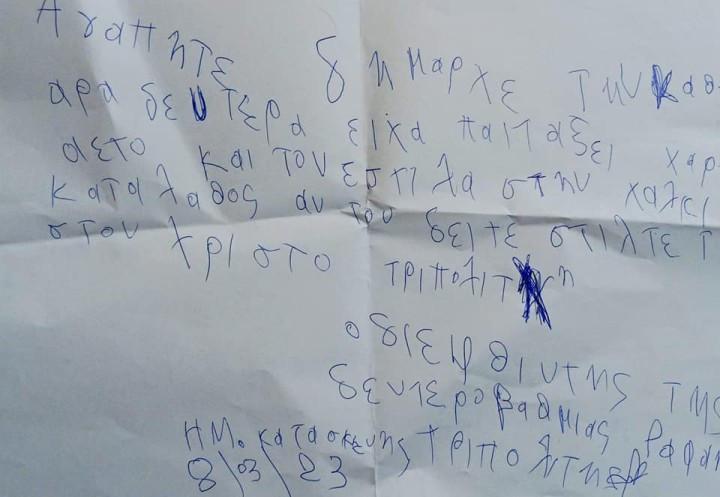 Αγαπητε δημαρχε την καθ
αρα δευτερα ειχα παιταξει χαρ
αετο και τον εστιλα στην χαλκι
κατα λαθος αν τον δειτε στιλτε τ
στον χριστο τριπολιτη
ο διεφθιντης της
δευτεροβαθμιας ραφαν
ΗΜ. κατασκευης τριπολτης
8/03/23